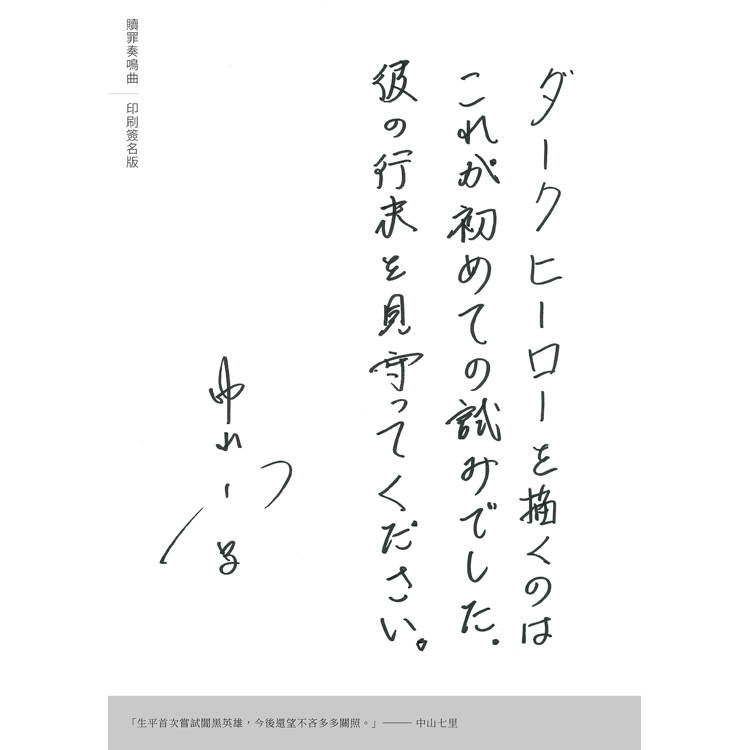 ダークヒーローを描くのは
これが初めての試みでした.
彼の行末を見守ってください。
贖罪奏鳴曲｜印刷簽名版
「生平首次嘗試闇黑英雄，今後還望不吝多多關照。」——— 中山七里